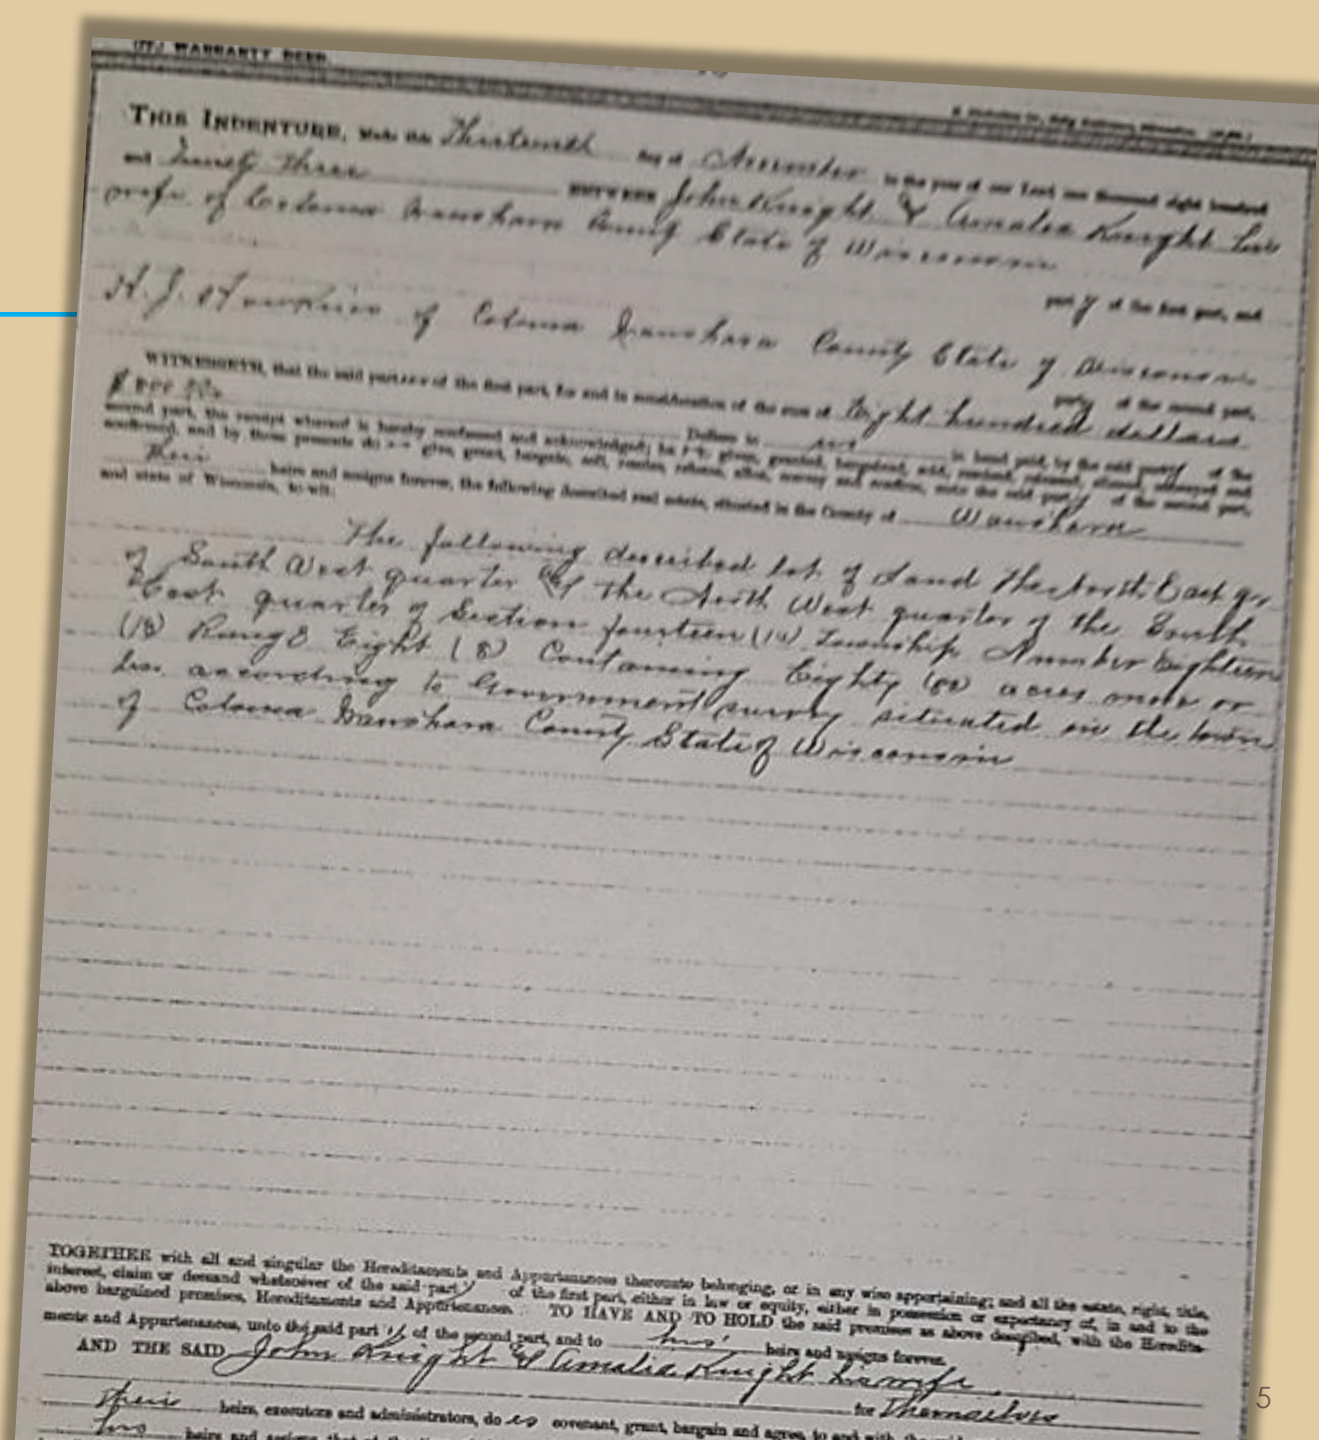 WARRANTY DEED.
THIS INDENTURE, Made this Thirteenth day of November in the year of our Lord one thousand eight hundred
and Ninety Three BETWEEN John Knight & Amalia Knight his
wife of Coloma Waushara County State of Wisconsin
part y of the first part, and
H. J. Hawkins of Coloma Waushara County State of Wisconsin
party of the second part,
WITNESSETH, that the said parties of the first part, for and in consideration of the sum of Eight hundred dollars
Dollars to in hand paid, by the said party of the
second part, the receipt whereof is hereby confessed and acknowledged; ha given, granted, bargained, sold, remised, released, aliened, conveyed and
confirmed, and by these presents do give, grant, bargain, sell, remise, release, alien, convey and confirm, unto the said party of the second part,
heirs and assigns forever, the following described real estate, situated in the County of Waushara
and state of Wisconsin, to-wit:
The following described lot of Land The North East qr
of South West quarter & the North West quarter of the South
East quarter of Section fourteen (14) Township Number Eighteen
(18) Range Eight (8) Containing Eighty (80) acres more or
less according to Government survey situated in the town
of Coloma Waushara County State of Wisconsin
TOGETHER with all and singular the Hereditaments and Appurtenances thereunto belonging, or in any wise appertaining; and all the estate, right, title,
interest, claim or demand whatsoever of the said part y of the first part, either in law or equity, either in possession or expectancy of, in and to the
above bargained premises, Hereditaments and Appurtenances. TO HAVE AND TO HOLD the said premises as above described, with the Heredita-
ments and Appurtenances, unto the said part y of the second part, and to his heirs and assigns forever.
AND THE SAID John Knight & Amalia Knight his wife
for Themselves
their heirs, executors and administrators, do covenant, grant, bargain and agree, to and with the said
his heirs and assigns, that
5